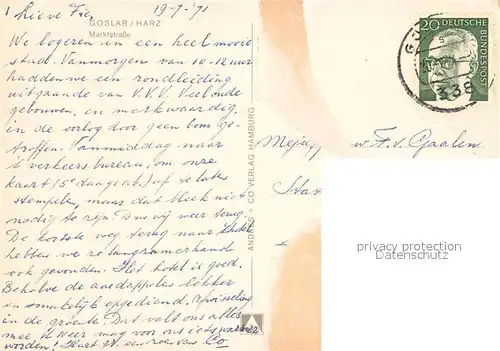 Lieve Fie,
19-7-'71
GOSLAR/HARZ
Marktstraße
We logeren in een heel mooie
stad. Vanmorgen van 10-12 uur
hadden we een rondleiding
uitgaande van V.V.V. Veel oude
gebouwen, en merkwaardig,
in de oorlog door geen bom ge-
troffen. Vanmiddag naar
't verkeersbureau, om onze
kaart (5e dang ab.) af te laten
stempelen, maar dat bleek niet
nodig te zijn. Dus wij weer terug.
De kortste weg terug naar hotel
hebben we zo langzamerhand
ook gevonden. Het hotel is goed.
Behalve de aardappelen lekker
en smakelijk opgediend. Afwisseling
in de groente. Dat valt ons alles
mee. 't Weer mag voor ons iets warmer
worden! Hart. gr. en zoen van Co
ANDRES + CO VERLAG HAMBURG
20 DEUTSCHE
BUNDESPOST
338
Mejuff
v. Gaalen
privacy protection
Datenschutz